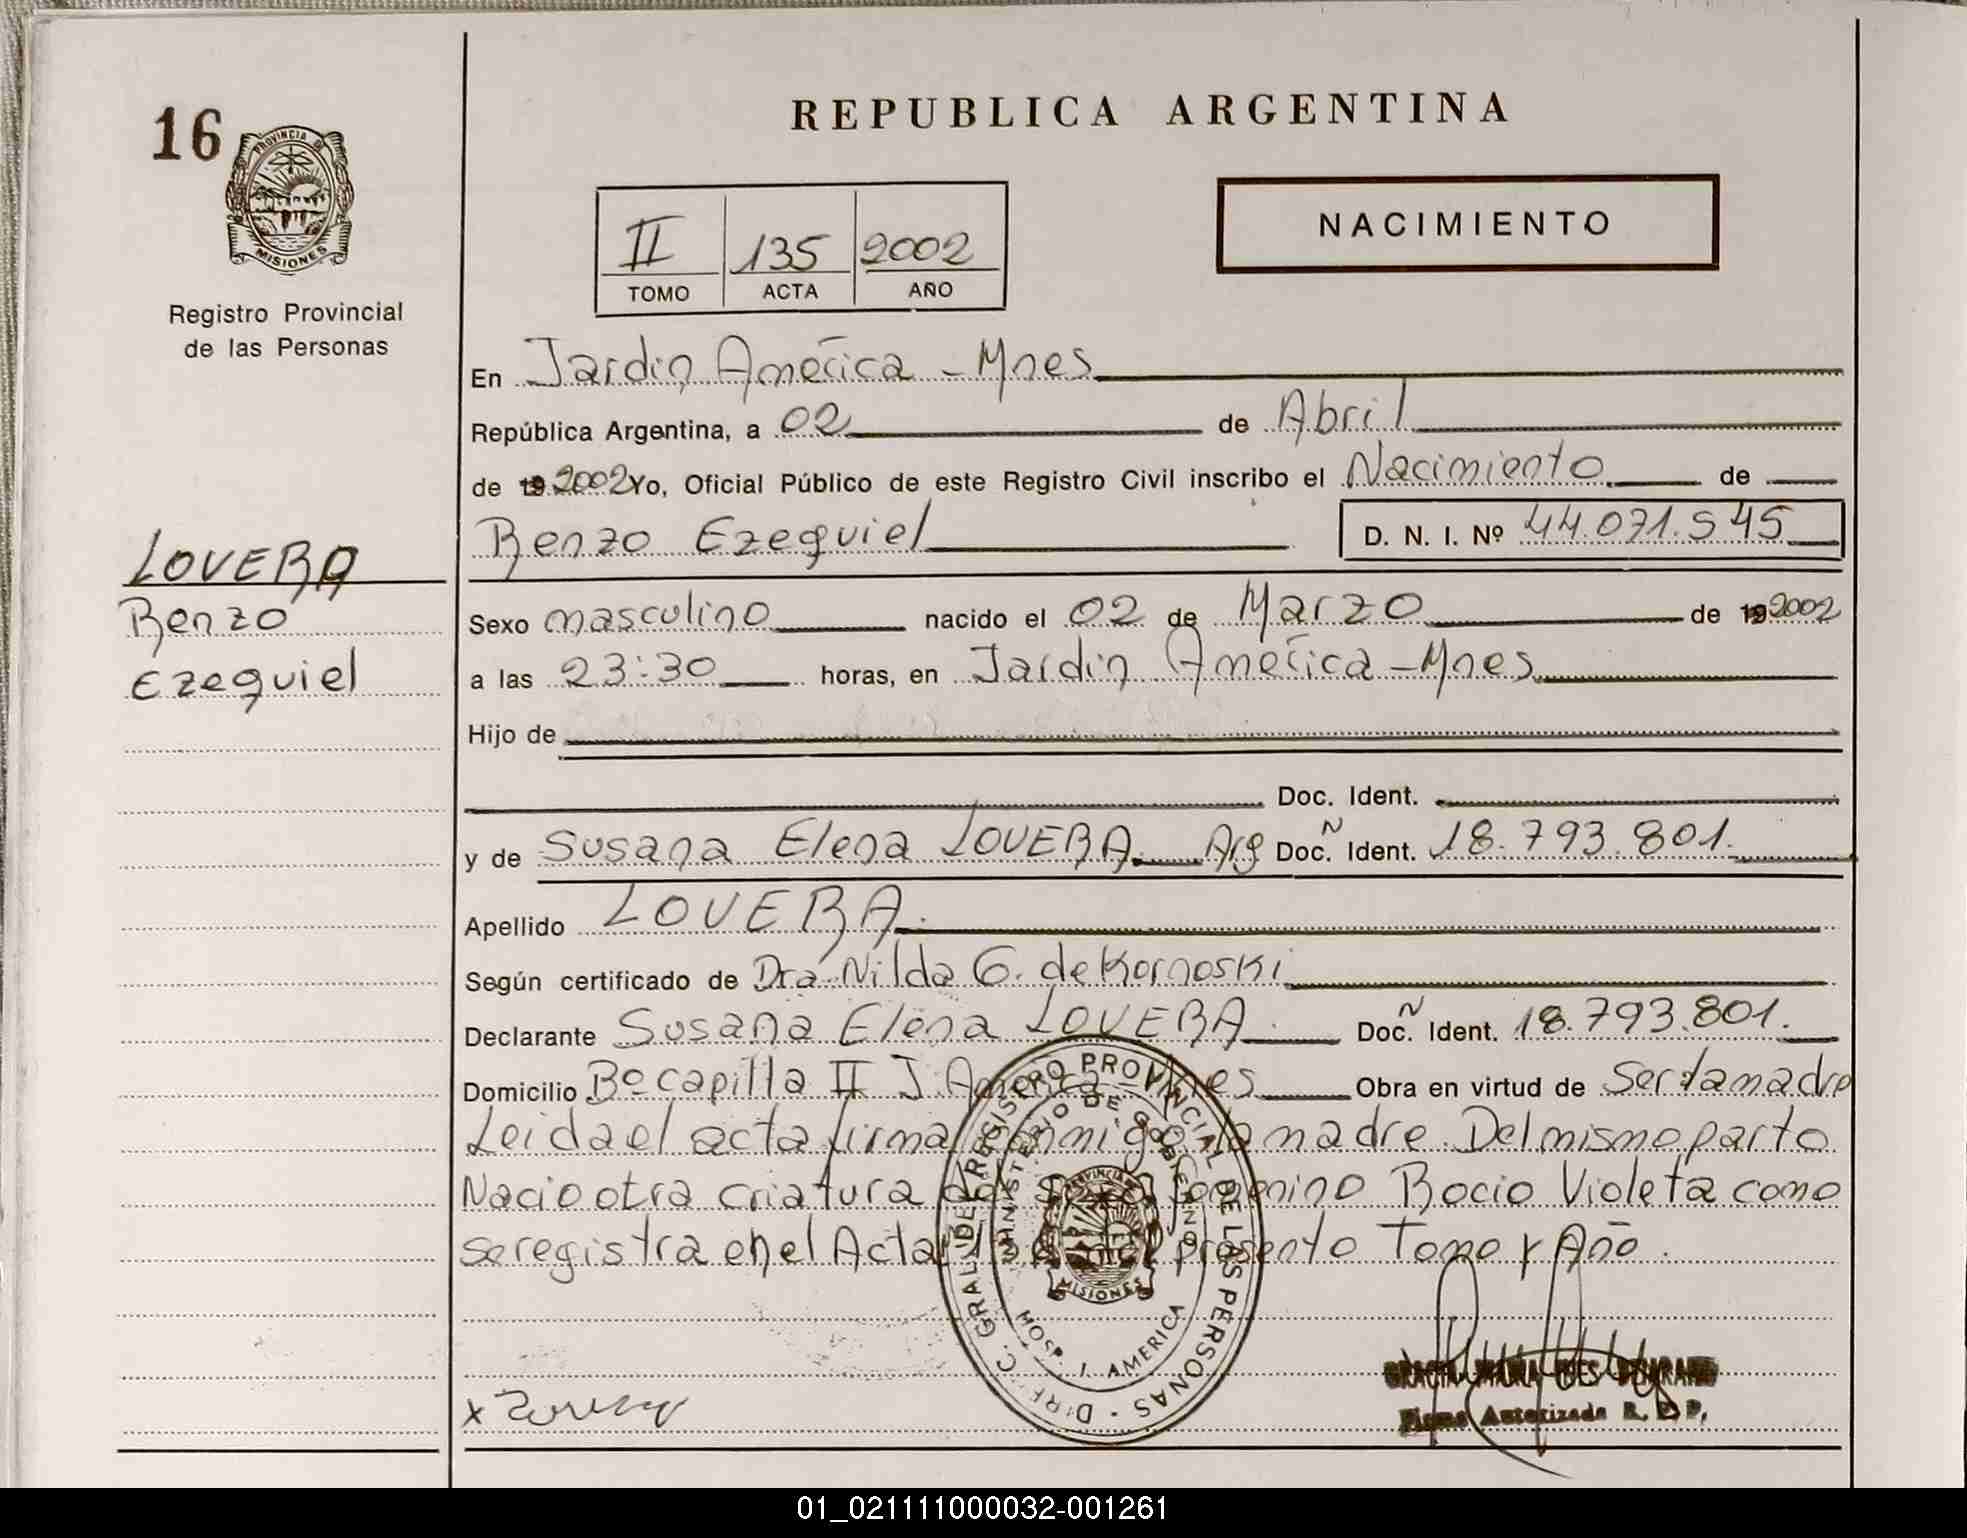 16
PROVINCIA DE
MISIONES
Registro Provincial
de las Personas
REPUBLICA ARGENTINA
NACIMIENTO
II 135 2002
TOMO ACTA AÑO
En Jardin América - Mnes
República Argentina, a 02 de Abril
de 19 2002 Yo, Oficial Público de este Registro Civil inscribo el Nacimiento de
Renzo Ezequiel D. N. I. Nº 44.071.545
LOVERA
Renzo
Ezequiel
Sexo masculino nacido el 02 de Marzo de 19 2002
a las 23:30 horas, en Jardin América - Mnes
Hijo de
Doc. Ident.
y de Susana Elena LOVERA. Arg Doc. N Ident. 18.793.801.
Apellido LOVERA.
Según certificado de Dra. Nilda G. de Kornoski
Declarante Susana Elena LOVERA. Doc. Ñ Ident. 18.793.801.
Domicilio Bº capilla II J. América - Mnes Obra en virtud de Ser la madre
Leida el acta firma conmigo la madre. Del mismo parto
Nacio otra criatura de sexo femenino Rocio Violeta como
se registra en el Acta del presente Tomo y Año.
DIREC. GRAL. DE REGISTRO PROVINCIAL DE LAS PERSONAS
MINISTERIO DE GOBIERNO
PROVINCIA
MISIONES
HOSP. J. AMERICA
x
MARIA INES
Firma Autorizada R. P. P.
01_021111000032-001261